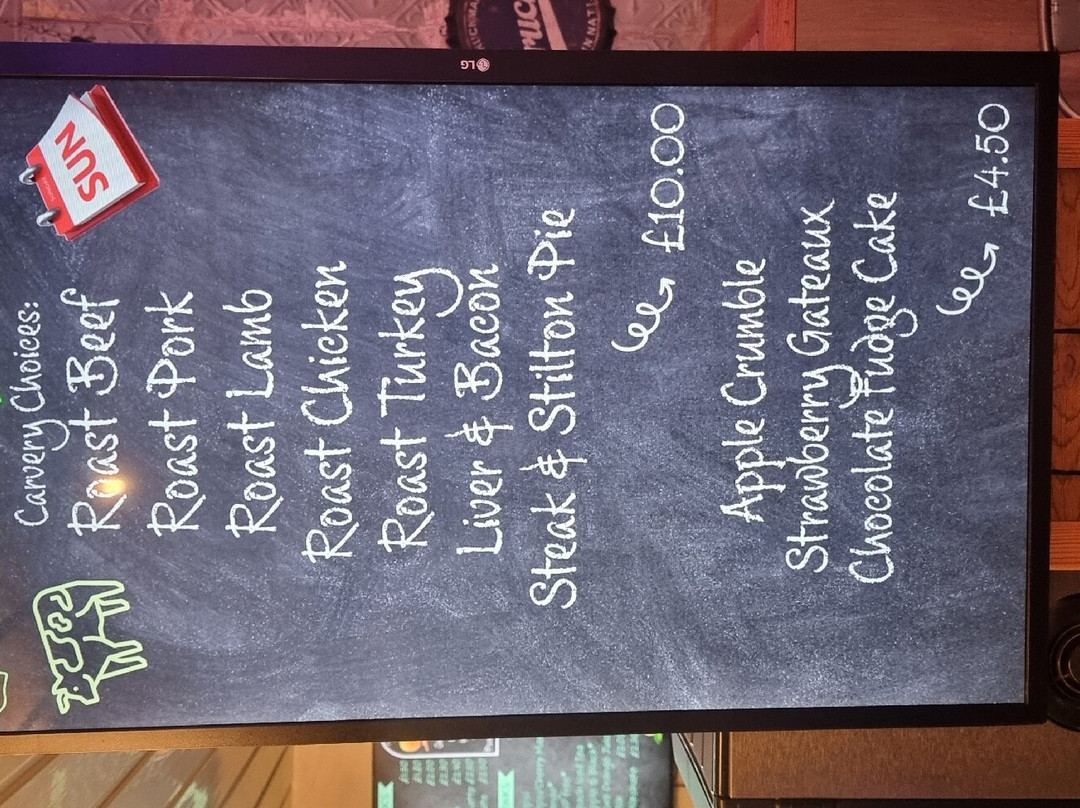 Carvery Choices:
SUN
Roast Beef
Roast Pork
Roast Lamb
Roast Chicken
Roast Turkey
Liver & Bacon
Steak & Stilton Pie
£10.00
Apple Crumble
Strawberry Gateaux
Chocolate Fudge Cake
£4.50
LG